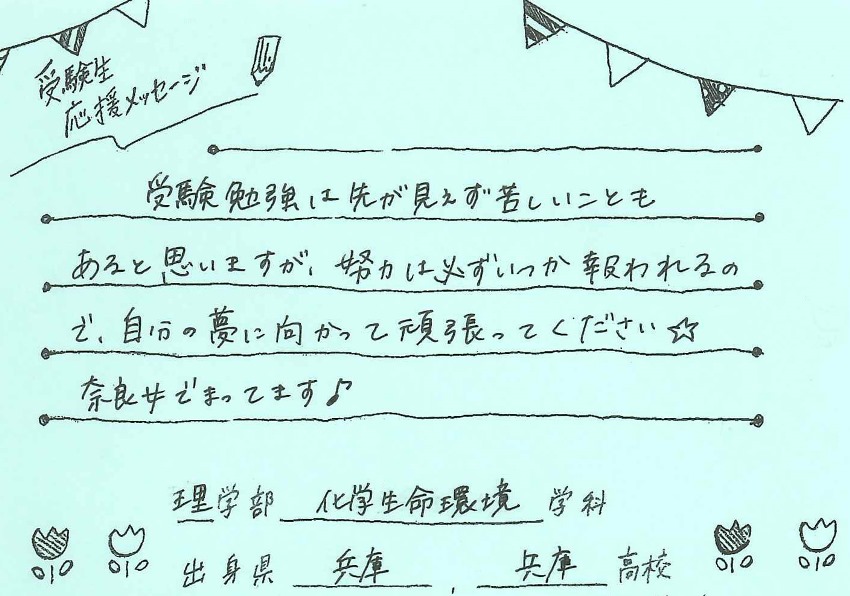 受験生
応援メッセージ
受験勉強は先が見えず苦しいことも
あると思いますが、努力は必ずいつか報われるの
で、自分の夢に向かって頑張ってください☆
奈良女でまってます♪
理学部 化学生命環境 学科
出身県 兵庫 , 兵庫 高校